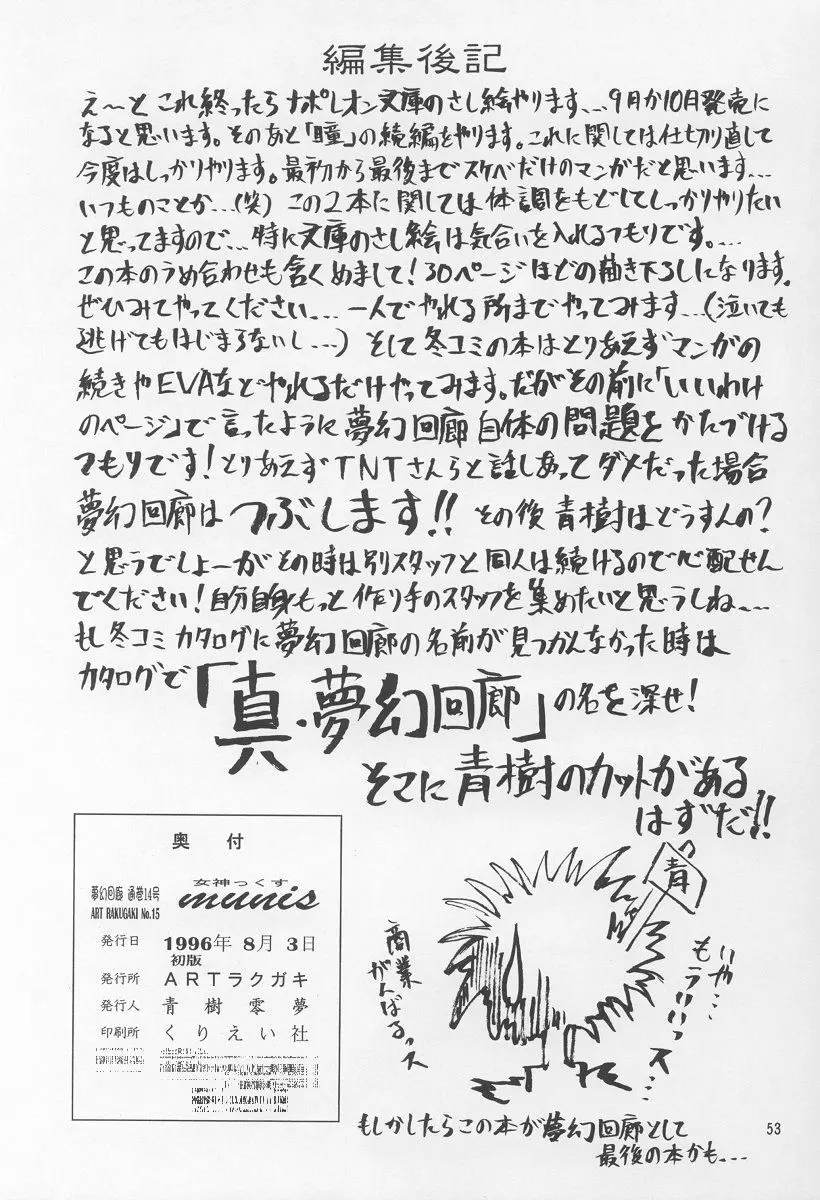 編集後記
え〜と これ終ったら ナポレオン文庫のさし絵やります....9月か10月発売に
なると思います。そのあと「瞳」の続編をやります。これに関しては仕切り直して
今度はしっかりやります。最初から最後までスケベだけのマンガだと思います....
いつものことか...(笑) この2本に関しては体調をもどしてしっかりやりたい
と思ってますので...特に文庫のさし絵は気合いを入れるつもりです。....
この本のうめ合わせも含くめまして!30ページほどの描き下ろしになります。
ぜひみてやってください....一人でやれる所までやってみます...(泣いても
逃げてもはじまらないし...) そして冬コミの本はとりあえずマンガの
続きやEVAなどやれるだけやってみます。だがその前に「いいわけ
のページ」で言ったように夢幻回廊自体の問題をかたづける
つもりです!とりあえずTNTさんらと話しあってダメだった場合
夢幻回廊は つぶします!! その後青樹はどうすんの?
と思うでしょーがその時は別スタッフと同人は続けるので心配せん
でください!自分自身もっと作り手のスタッフを集めたいと思うしね....
もし冬コミカタログに夢幻回廊の名前が見つかんなかった時は
カタログで「真・夢幻回廊」の名を深せ!
そこに青樹のカットがある
はずだ!!
奥付
夢幻回廊 通巻14号
ART RAKUGAKI No.15
女神っくす
munis
発行日 1996年 8月 3日
初版
発行所 ARTラクガキ
発行人 青樹零夢
印刷所 くりえい社
青
商業
がんばるっス
いや...
もういいっス...
もしかしたらこの本が夢幻回廊として
最後の本かも....
53